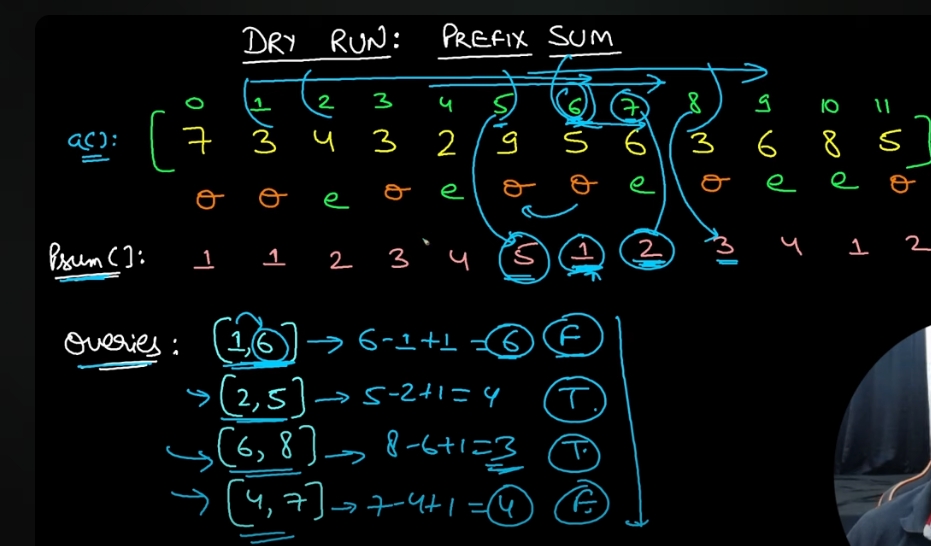 DRY RUN: PREFIX SUM
0 1 2 3 4 5 6 7 8 9 10 11
a[]: [ 7 3 4 3 2 9 5 6 3 6 8 5 ]
o o e o e o o e o e e o
Psum[]: 1 1 2 3 4 5 1 2 3 4 1 2
Queries: [1,6] → 6-1+1 = 6 F
→ [2,5] → 5-2+1 = 4 T.
→ [6,8] → 8-6+1 = 3 T.
→ [4,7] → 7-4+1 = 4 F.